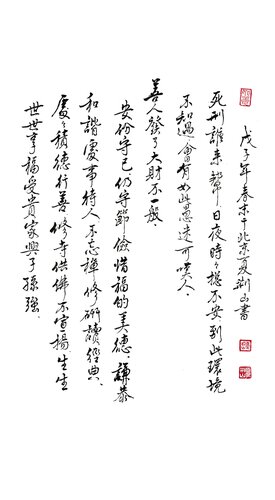 戊子年春末于北京夏荆山書
死刑誰来幫日夜時々穩不安到此環境
不知過會有如此惡遠可嘆人
善人發了大財不一般
安份守己仍守節儉惜福的美德謙恭
和諧處事待人不忘禪修研讀經典
處々積德行善修寺供佛不宣揚生生
世世享福受貴家興子孫強